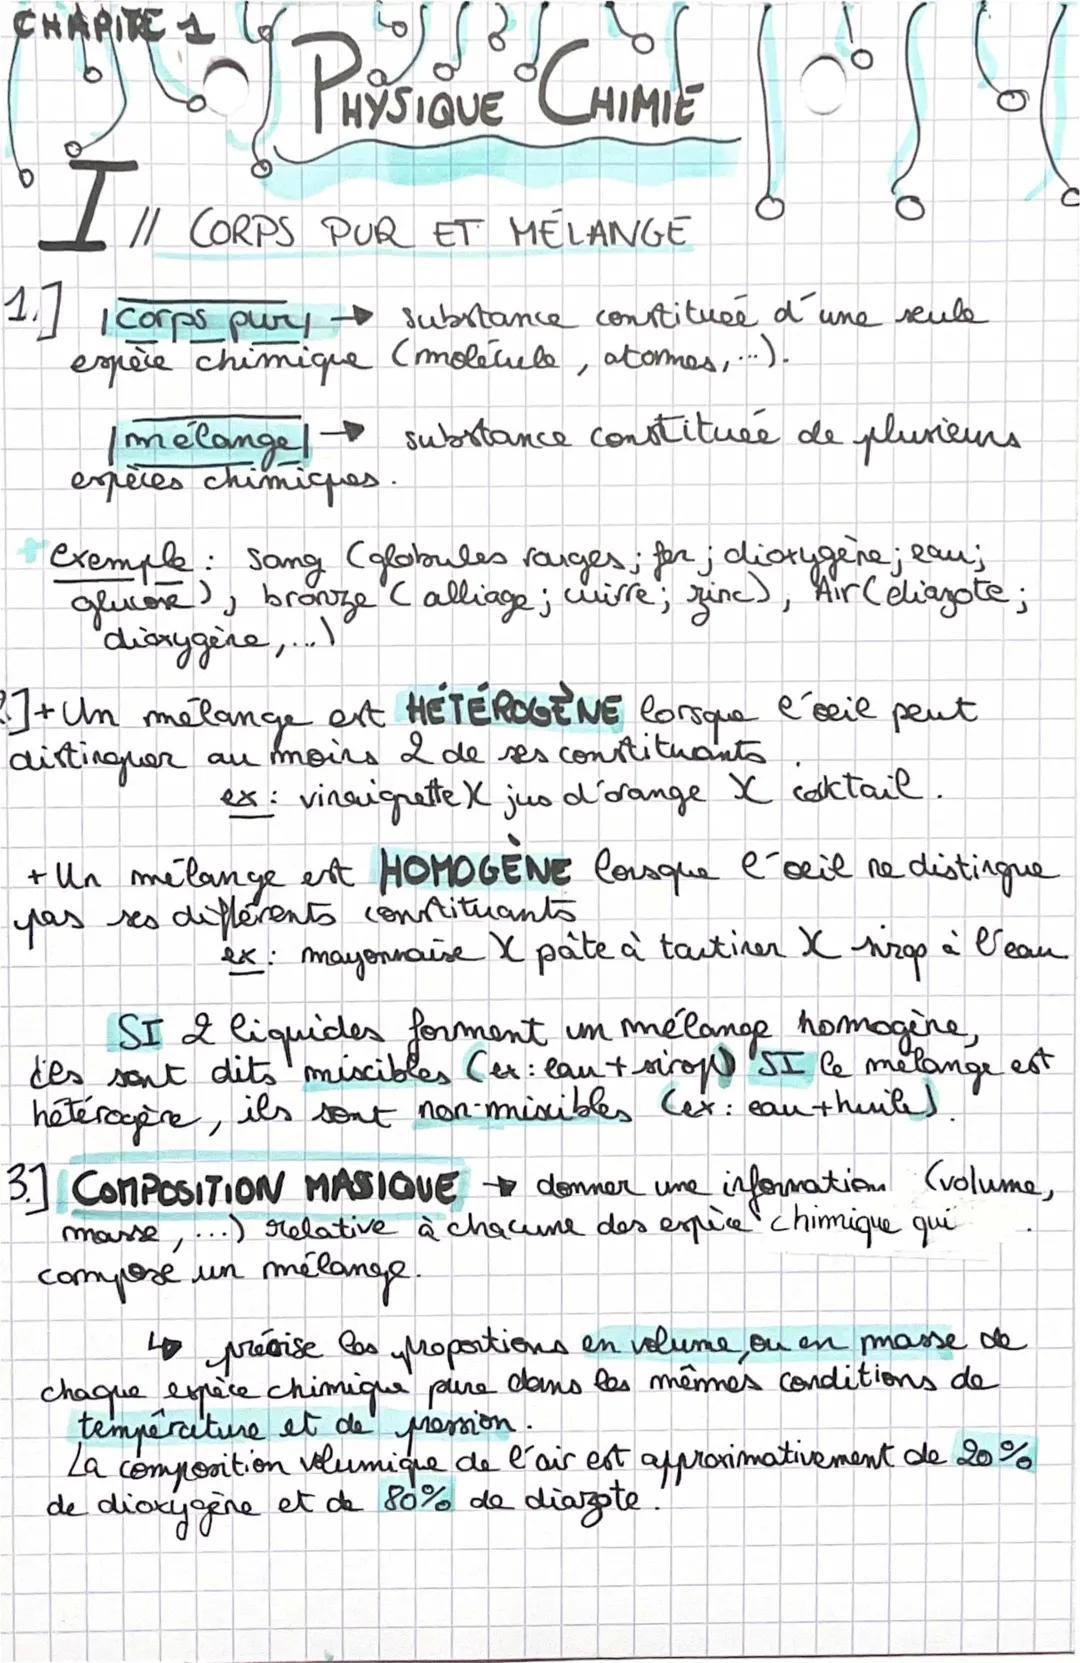 CHAPITE 1
PHYSIQUE CHIMIE
I // CORPS PUR ET MÉLANGE
1.] |corps pur| → substance constitueé d'une seule
espèce chimique (molécule, atomes, ...).
|mélange| → substance constitueé de plusieurs
espèces chimiques.
+ exemple : sang (globules rouges ; fer ; dioxygène ; eau ;
glucose), bronze (alliage ; cuivre ; zinc), Air (diazote ;
dioxygène, ...)
2.] + Un mélange est HÉTÉROGÈNE lorsque l'oeil peut
distinguer au moins 2 de ses constituants.
ex : vinaigrette X jus d'orange X coktail.
+ Un mélange est HOMOGÈNE lorsque l'oeil ne distingue
pas ses différents constituants
ex : mayonnaise X pâte à tartiner X sirop à l'eau
SI 2 liquides forment un mélange homogène,
ils sont dits miscibles (ex : eau + sirop) SI le mélange est
hétérogène, ils sont non-miscibles (ex : eau + huile).
3.] COMPOSITION MASIQUE → donner une information (volume,
masse, ...) relative à chacune des espèce chimique qui
compose un mélange.
↳ précise les proportions en volume ou en masse de
chaque espèce chimique pure dans les mêmes conditions de
température et de pression.
La composition volumique de l'air est approximativement de 20%
de dioxygène et de 80% de diazote.